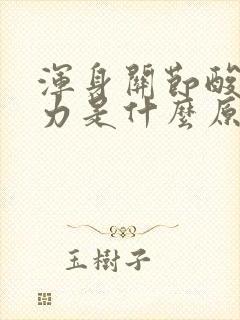 渾身關節酸
力是什麼原
玉樹子